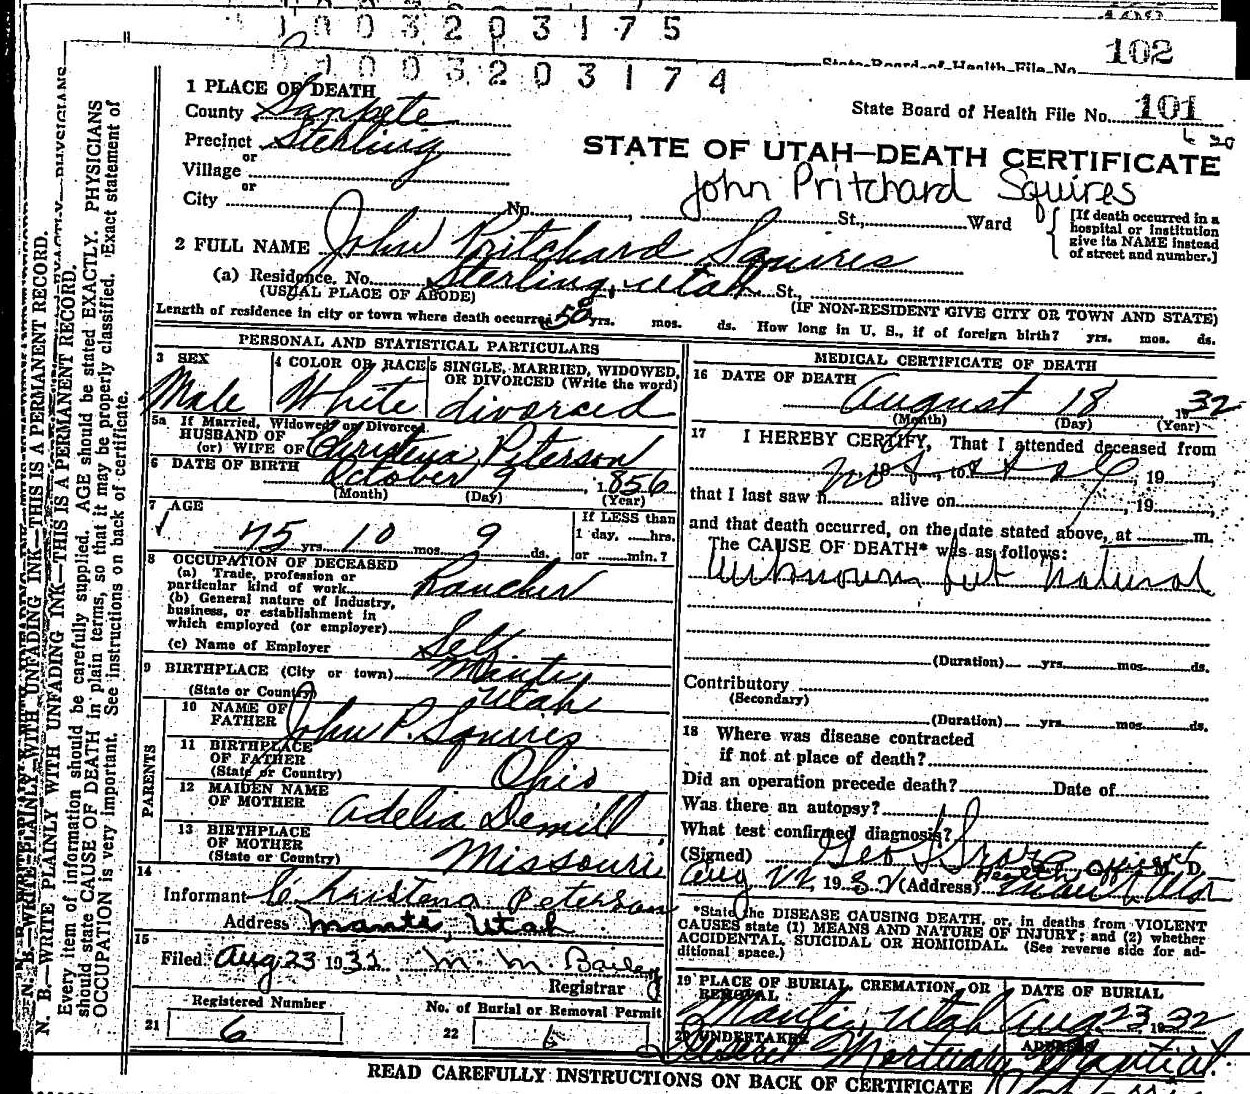 1003203175
102
State Board of Health File No.
1003203174
1 PLACE OF DEATH
County Sanpete
State Board of Health File No. 101
Precinct Sterling
or
Village
or
City
STATE OF UTAH—DEATH CERTIFICATE
John Pritchard Squires
No. , St., Ward
[If death occurred in a
hospital or institution
give its NAME instead
of street and number.]
2 FULL NAME John Pritchard Squires
(a) Residence. No. Sterling, Utah St.,
(USUAL PLACE OF ABODE)
(IF NON-RESIDENT GIVE CITY OR TOWN AND STATE)
Length of residence in city or town where death occurred 50 yrs. mos. ds. How long in U. S., if of foreign birth? yrs. mos. ds.
PERSONAL AND STATISTICAL PARTICULARS
3 SEX
Male
4 COLOR OR RACE
White
5 SINGLE, MARRIED, WIDOWED,
OR DIVORCED (Write the word)
divorced
5a If Married, Widowed or Divorced
HUSBAND OF
(or) WIFE OF Peterson
6 DATE OF BIRTH October 9, 1856
(Month) (Day) (Year)
7 AGE
75 yrs. 10 mos. 9 ds.
If LESS than
1 day, hrs.
or min.?
8 OCCUPATION OF DECEASED
(a) Trade, profession or
particular kind of work Rancher
(b) General nature of industry,
business, or establishment in
which employed (or employer)
(c) Name of Employer Self
9 BIRTHPLACE (City or town) Manti
(State or Country) Utah
PARENTS
10 NAME OF
FATHER John P. Squires
11 BIRTHPLACE
OF FATHER
(State or Country) Ohio
12 MAIDEN NAME
OF MOTHER Adelia Demill
13 BIRTHPLACE
OF MOTHER
(State or Country) Missouri
14
Informant Christena Peterson
Address Manti, Utah
15
Filed Aug 23 1932 M. M. Bailey
Registrar
Registered Number
21 6
No. of Burial or Removal Permit
22 6
MEDICAL CERTIFICATE OF DEATH
16 DATE OF DEATH
August 18, 1932
(Month) (Day) (Year)
17 I HEREBY CERTIFY, That I attended deceased from
19 , to , 19 ,
that I last saw h alive on , 19 ,
and that death occurred, on the date stated above, at m.
The CAUSE OF DEATH* was as follows:
Unknown but natural
(Duration) yrs. mos. ds.
Contributory
(Secondary)
(Duration) yrs. mos. ds.
18 Where was disease contracted
if not at place of death?
Did an operation precede death? Date of
Was there an autopsy?
What test confirmed diagnosis?
(Signed) Geo M. D.
Health Officer
Aug 22 1932 (Address) Manti Utah
*State the DISEASE CAUSING DEATH, or, in deaths from VIOLENT
CAUSES state (1) MEANS AND NATURE OF INJURY; and (2) whether
ACCIDENTAL, SUICIDAL OR HOMICIDAL. (See reverse side for ad-
ditional space.)
19 PLACE OF BURIAL, CREMATION, OR
REMOVAL
Manti, Utah
DATE OF BURIAL
Aug 23 1932
20 UNDERTAKER
Deseret Mortuary
ADDRESS
Manti Ut.
READ CAREFULLY INSTRUCTIONS ON BACK OF CERTIFICATE
N. B.—WRITE PLAINLY WITH UNFADING INK—THIS IS A PERMANENT RECORD.
Every item of information should be carefully supplied. AGE should be stated EXACTLY. PHYSICIANS
should state CAUSE OF DEATH in plain terms, so that it may be properly classified. Exact statement of
OCCUPATION is very important. See instructions on back of certificate.